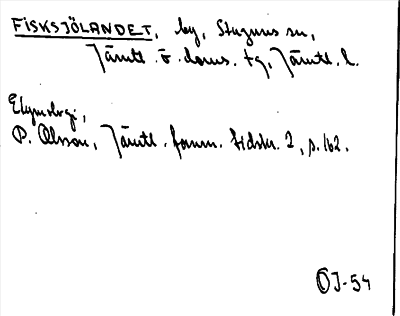 FISKSJÖLANDET, by, Stuguns sn,
Jämtl. ö. doms. tg, Jämtl. l.
Etymologi;
P. Olsson, Jämtl. fornm. tidskr. 2, s. 162.
OJ-54